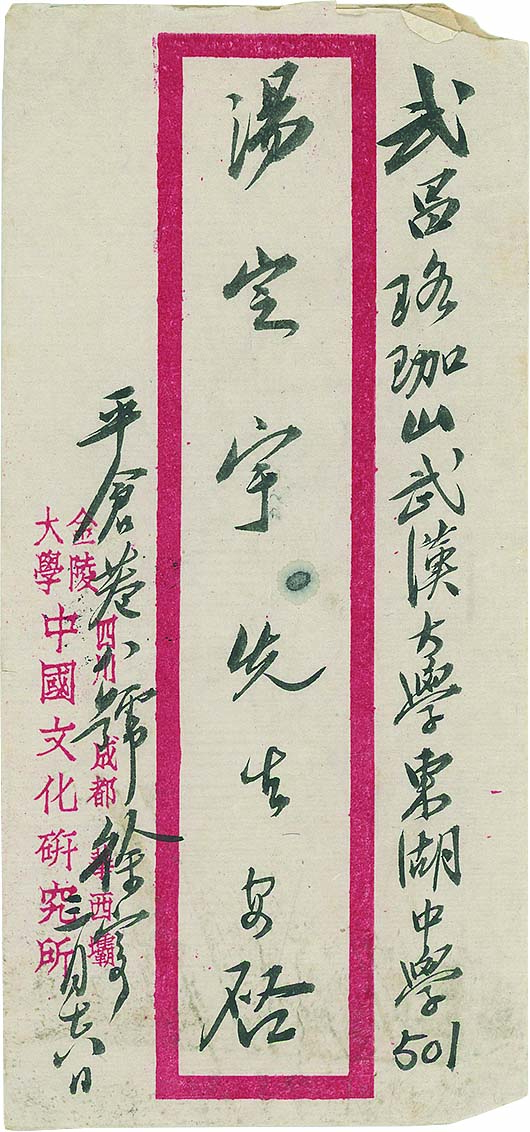 武昌珞珈山武漢大學東湖中學501
湯定宇先生安啓
平倉巷八號徐寄
四川成都華西壩
金陵大學中國文化研究所